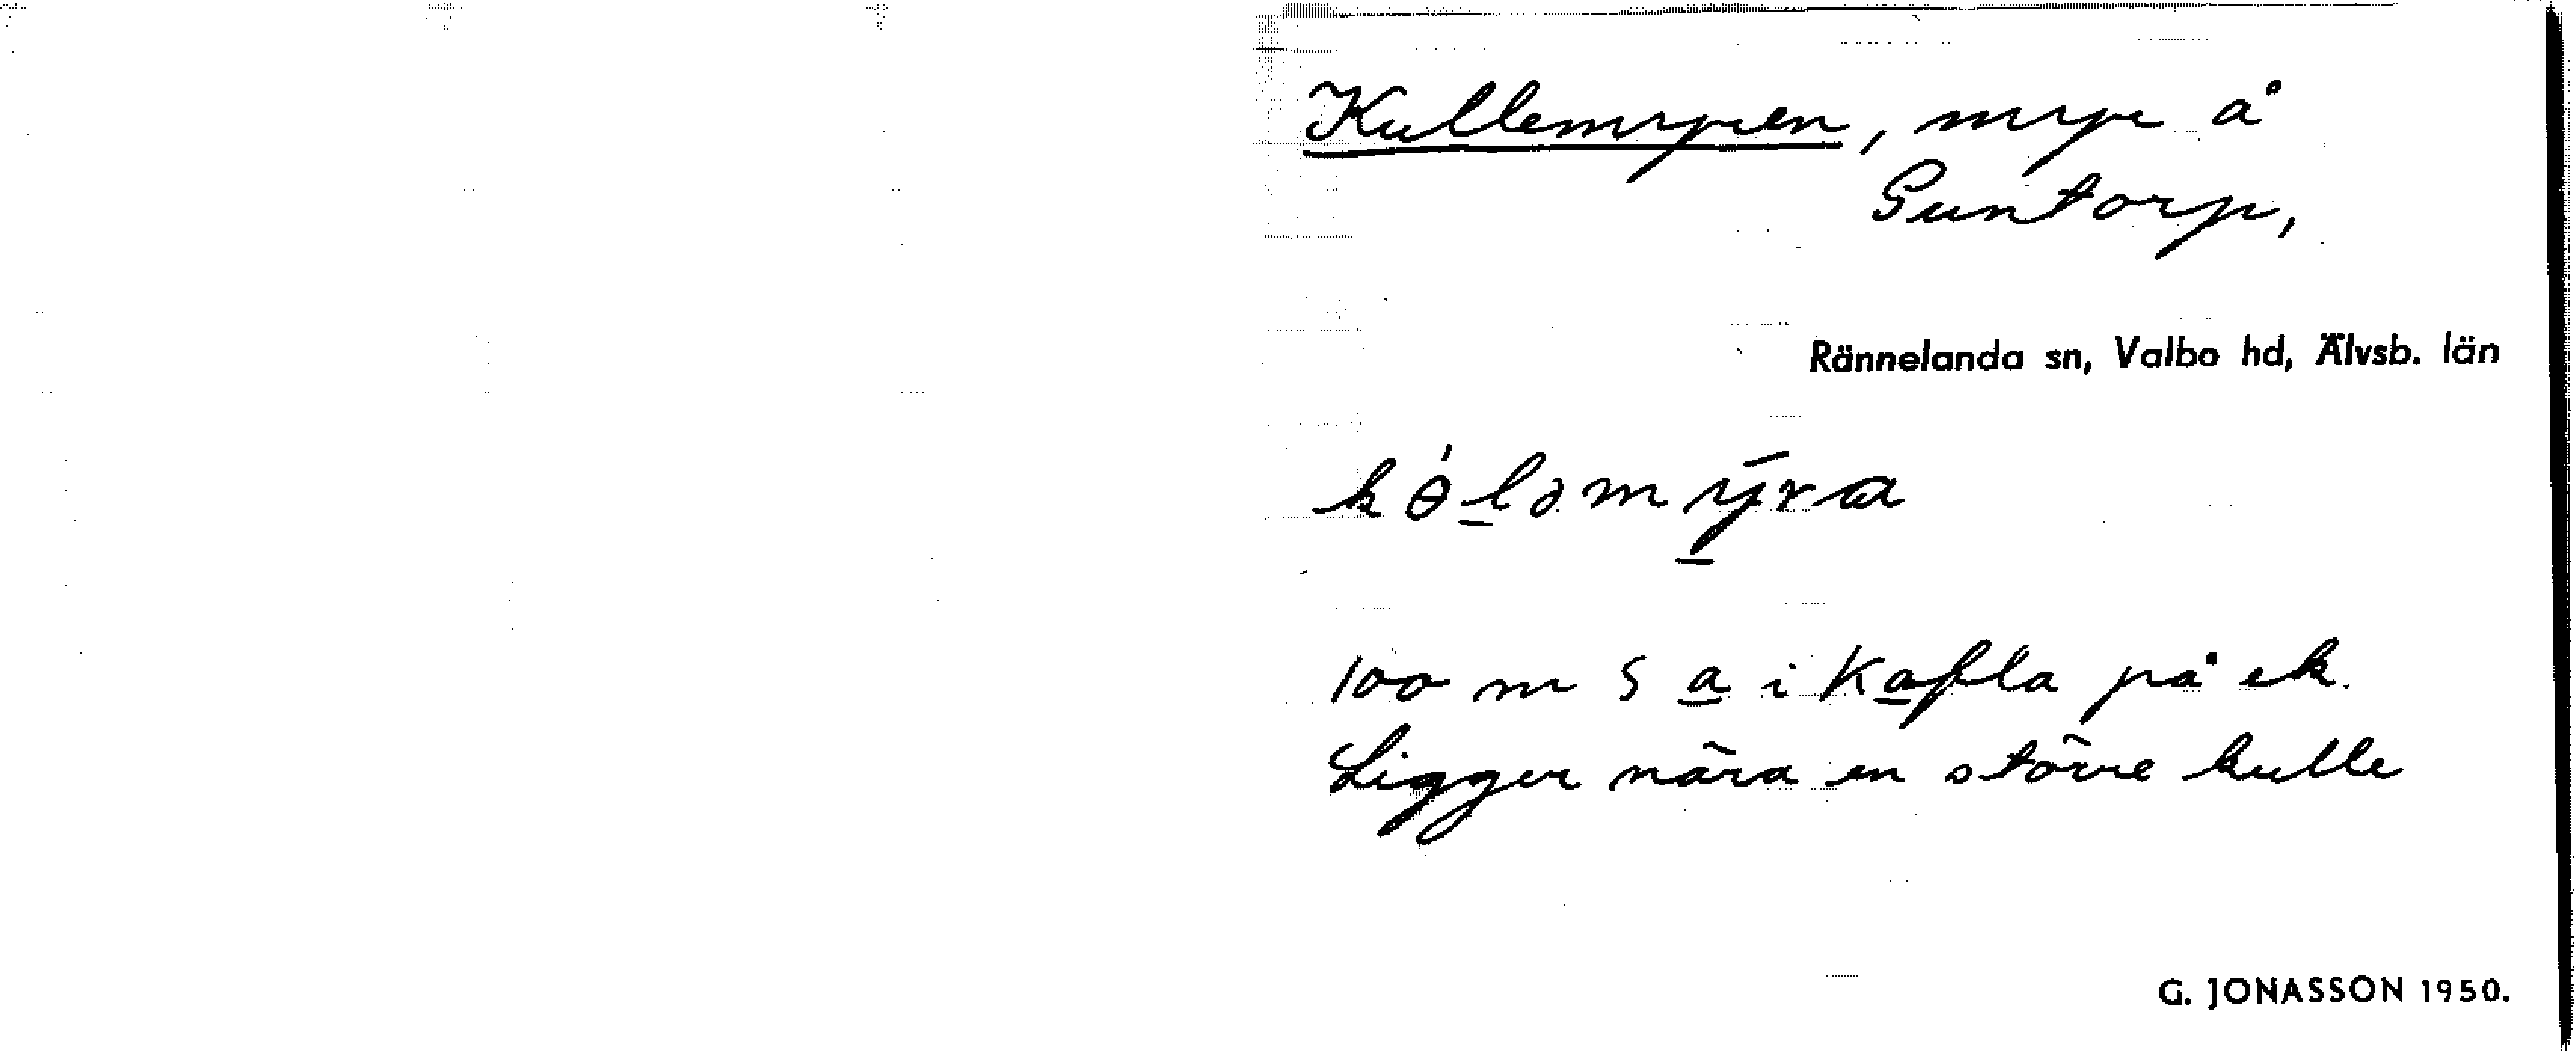 Kullemyren, myr å
Guntorp,
Rännelanda sn, Valbo hd, Älvsb. län
kɵ́ləmȳra
100 m S a i Kafla på ek.
Ligger nära en större kulle
G. JONASSON 1950.